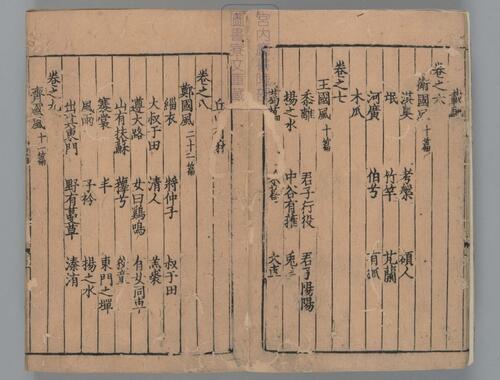 卷之六
衛國風 十篇
淇奧 考槃 碩人
氓 竹竿 芄蘭
河廣 伯兮 有狐
木瓜
卷之七
王國風 十篇
黍離 君子行役 君子陽陽
揚之水 中谷有蓷 兔
葛藟 大車
丘
卷之八
鄭國風 二十一篇
緇衣 將仲子 叔于田
大叔于田 清人 羔裘
遵大路 女曰鷄鳴 有女同車
山有扶蘇 蘀兮 狡童
褰裳 丰 東門之墠
風雨 子衿 揚之水
出其東門 野有蔓草 溱洧
卷之九
齊國風 十一篇